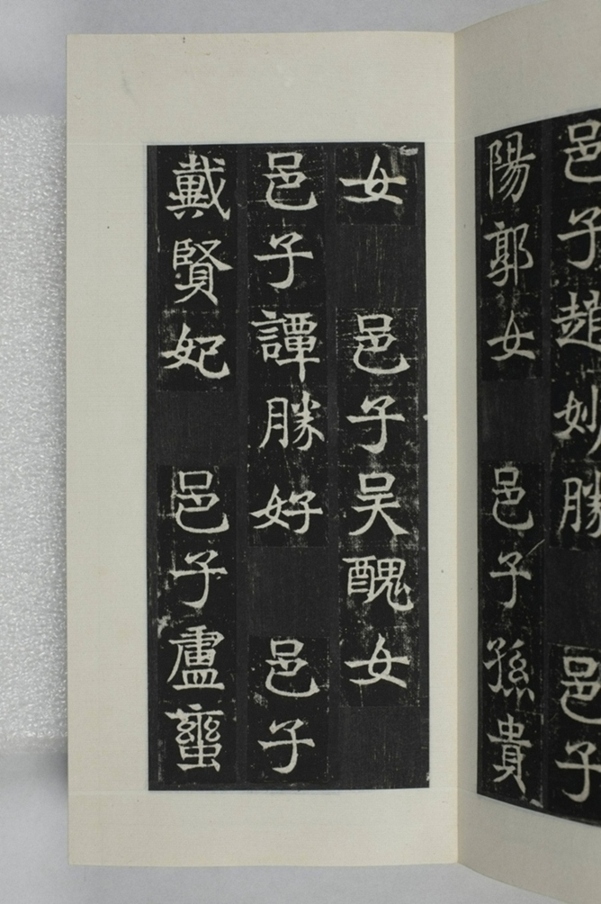 邑子趙妙勝 邑子
陽郭女 邑子孫貴
女 邑子吴醜女
邑子譚勝好 邑子
戴賢妃 邑子盧蠻